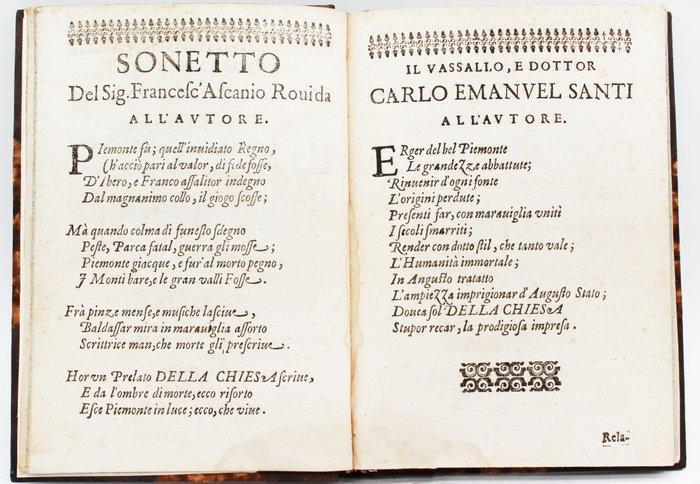 SONETTO
Del Sig. Francesc'Ascanio Rouida
ALL'AVTORE.
PIemonte fù; quell'inuidiato Regno,
Ch'acciò pari al valor, di fede fosse,
D'Ibero, e Franco assalitor indegno
Dal magnanimo collo, il giogo scosse;
Mà quando colma di funesto sdegno
Peste, Parca fatal, guerra gli mosse;
Piemonte giacque, e fur' al morto pegno,
I Monti bare, e le gran valli Fosse.
Frà pinze mense, e musiche lasciue,
Baldassar mira in marauiglia assorto
Scrittrice man, che morte gli prescriue.
Hor vn Prelato DELLA CHIESA scriue,
E da l'ombre di morte, ecco risorto
Esce Piemonte in luce; ecco, che viue.
IL VASSALLO, E DOTTOR
CARLO EMANVEL SANTI
ALL'AVTORE.
ERger del bel Piemonte
Le grandezze abbattute;
Rinuenir d'ogni fonte
L'origini perdute;
Presenti far, con marauiglia vniti
I secoli smarriti;
Render con dotto stil, che tanto vale;
L'Humanità immortale;
In Angusto tratatto
L'ampiezza imprigionar d'Augusto Stato;
Douea sol DELLA CHIESA
Stupor recar, la prodigiosa impresa.
Rela-